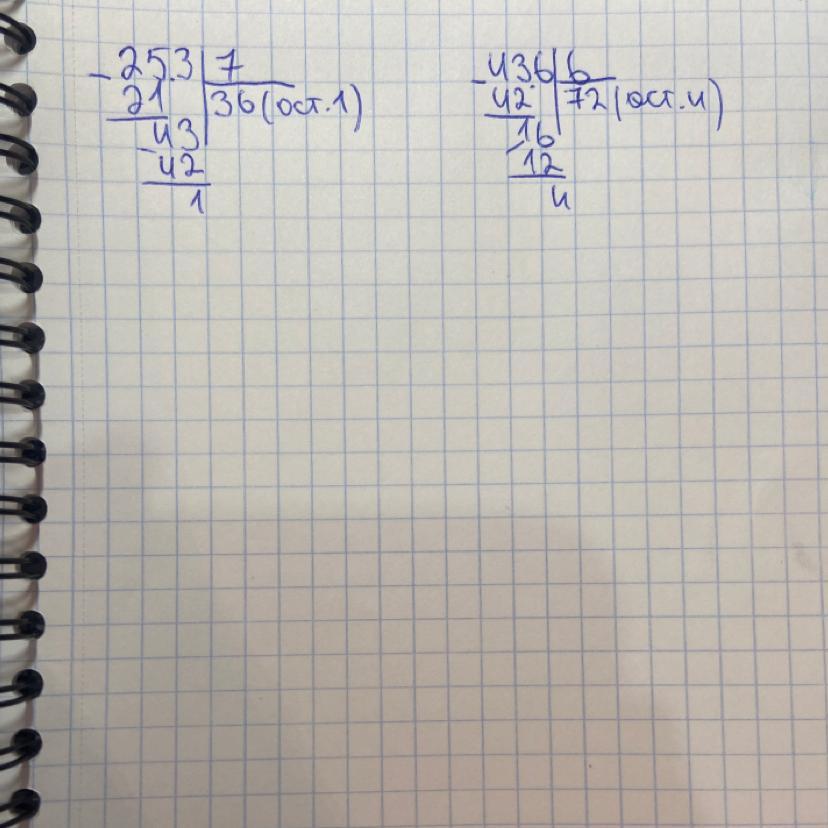 - 253 | 7
21 | 36 (ост. 1)
- 43
42
1
- 436 | 6
42 | 72 (ост. 4)
- 16
12
4